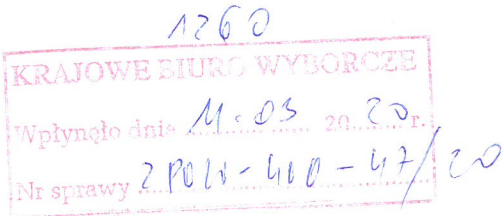 1260
KRAJOWE BIURO WYBORCZE
Wpłynęło dnia 11.03 20 20 r.
Nr sprawy ZPOW-410-47/20